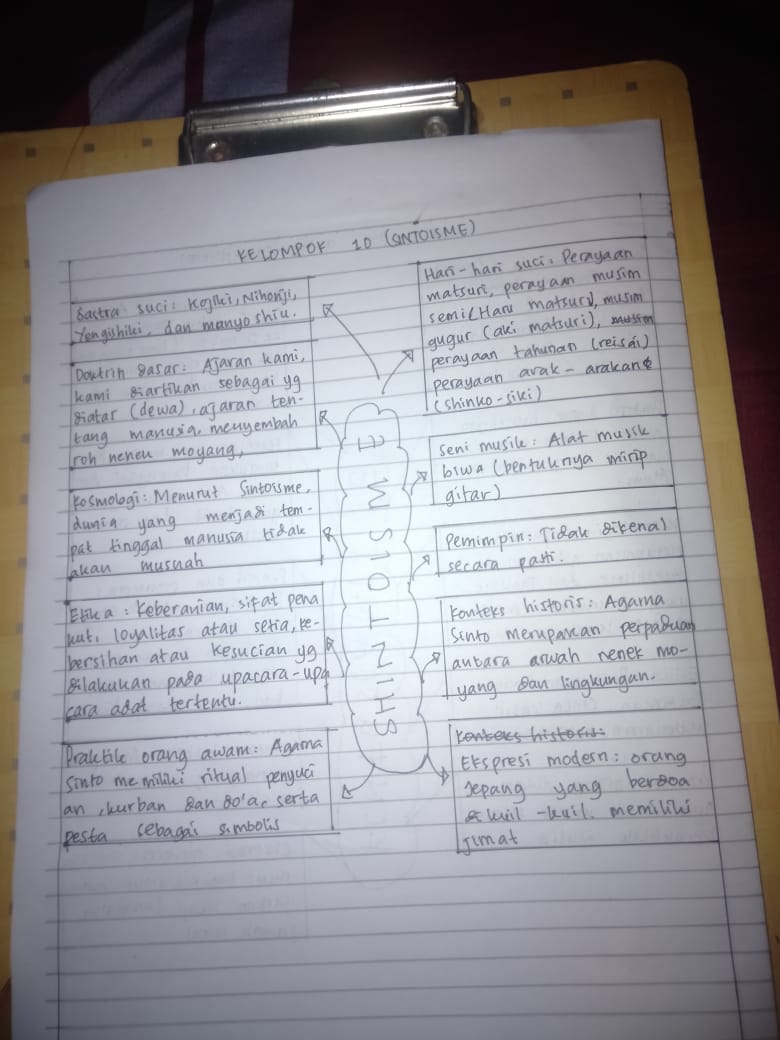 KELOMPOK 10 (SINTOISME)
Sastra suci: Kojiki, Nihonji,
Yengishiki, dan manyo shiu.
Doktrin dasar: Ajaran kami,
kami diartikan sebagai yg
diatar (dewa), ajaran ten-
tang manusia, menyembah
roh nenek moyang,
Kosmologi: Menurut Sintoisme,
dunia yang menjadi tem-
pat tinggal manusia tidak
akan musnah
Etika: Keberanian, sifat pena
kut, loyalitas atau setia, ke-
bersihan atau kesucian yg
dilakukan pada upacara-upa
cara adat tertentu.
Praktik orang awam: Agama
Sinto memiliki ritual penyuci
an, kurban dan do'a, serta
pesta sebagai simbolis
SHINTOISME
Hari-hari suci: Perayaan
matsuri, perayaan musim
semi (Haru matsuri), musim
gugur (aki matsuri), musim
perayaan tahunan (reisai)
perayaan arak-arakan
(shinko-siki)
Seni musik: Alat musik
biwa (bentuknya mirip
gitar)
Pemimpin: Tidak dikenal
secara pasti.
Konteks historis: Agama
Sinto merupakan perpaduan
antara arwah nenek mo-
yang dan lingkungan.
Konteks historis:
Ekspresi modern: orang
Jepang yang berdoa
d kuil-kuil. memiliki
jimat